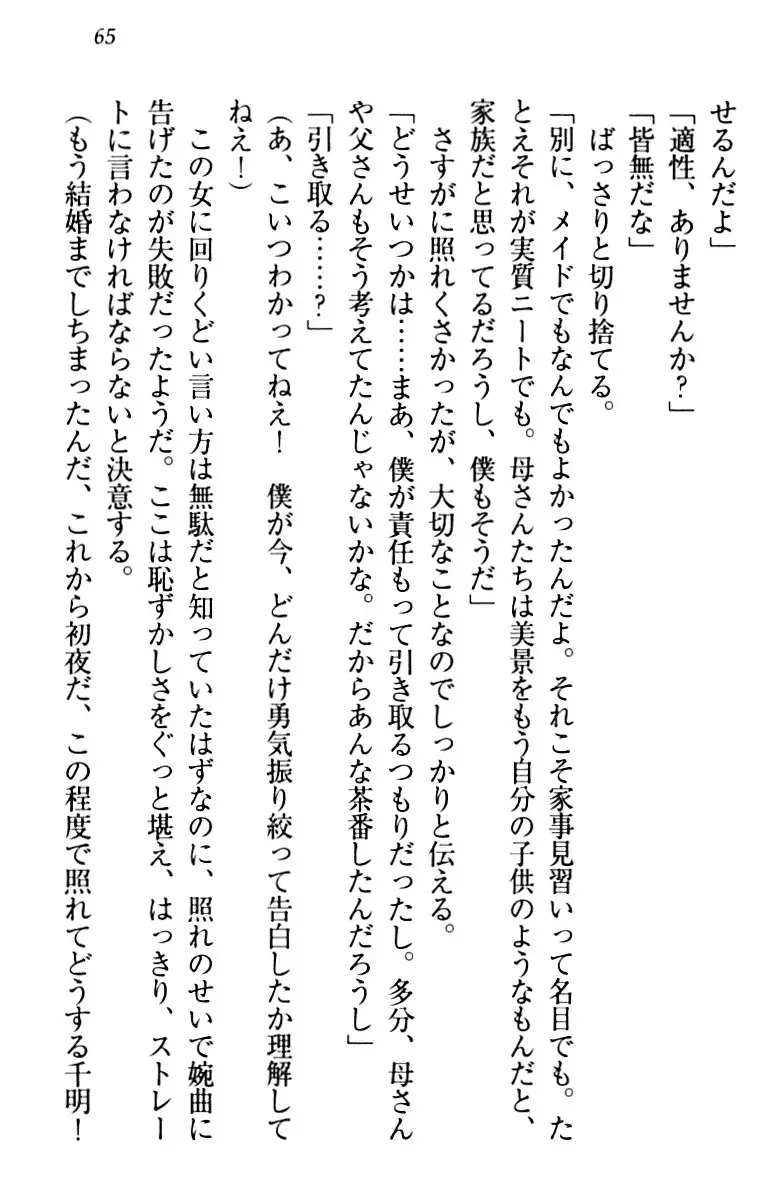 65
せるんだよ」
「適性、ありませんか?」
「皆無だな」
ばっさりと切り捨てる。
「別に、メイドでもなんでもよかったんだよ。それこそ家事見習いって名目でも。た
とえそれが実質ニートでも。母さんたちは美景をもう自分の子供のようなもんだと、
家族だと思ってるだろうし、僕もそうだ」
さすがに照れくさかったが、大切なことなのでしっかりと伝える。
「どうせいつかは……まあ、僕が責任もって引き取るつもりだったし。多分、母さん
や父さんもそう考えてたんじゃないかな。だからあんな茶番したんだろうし」
「引き取る……?」
(あ、こいつわかってねえ! 僕が今、どんだけ勇気振り絞って告白したか理解して
ねえ!)
この女に回りくどい言い方は無駄だと知っていたはずなのに、照れのせいで婉曲に
告げたのが失敗だったようだ。ここは恥ずかしさをぐっと堪え、はっきり、ストレー
トに言わなければならないと決意する。
(もう結婚までしちまったんだ、これから初夜だ、この程度で照れてどうする千明!